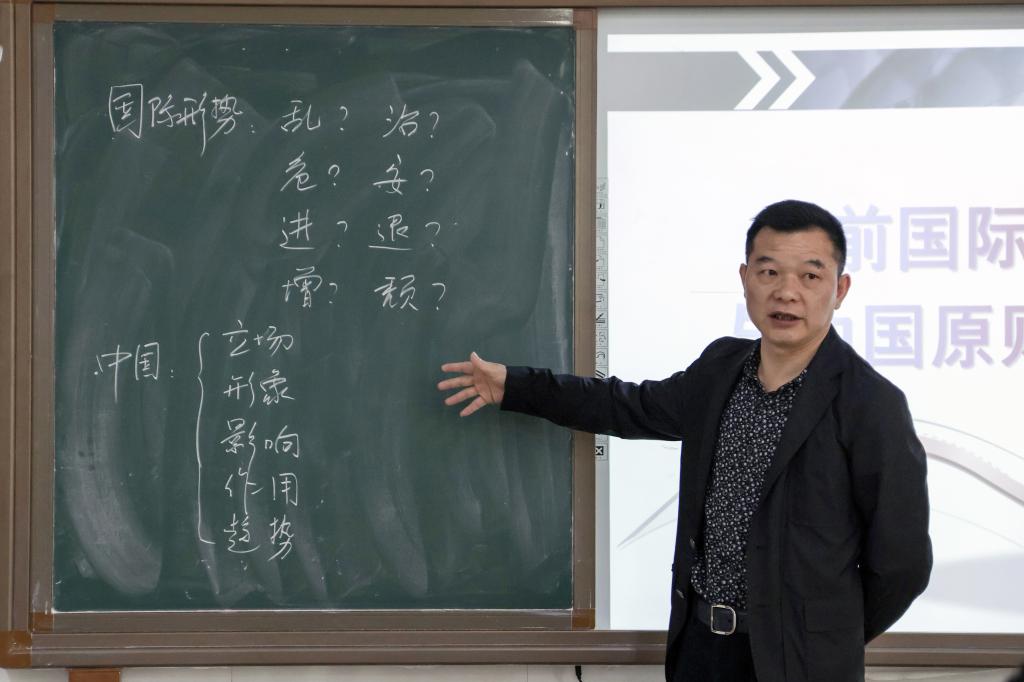 国际形势：乱？ 治？
危？ 安？
进？ 退？
增？ 颓？
中国：
立场
形象
影响
作用
趋势
前国际
中国原则